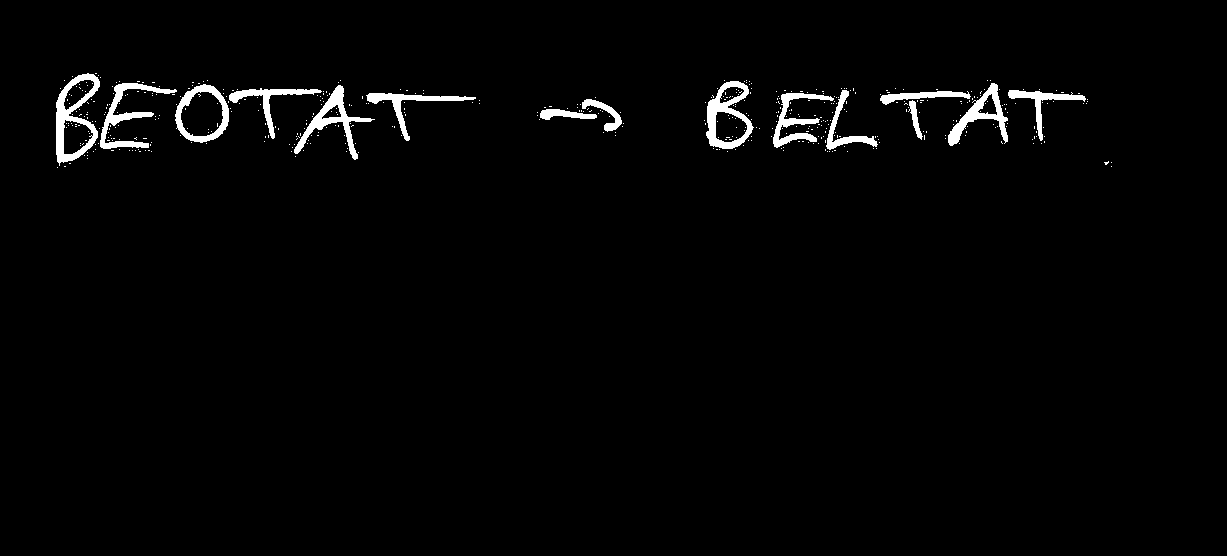 BEOTAT → BELTAT